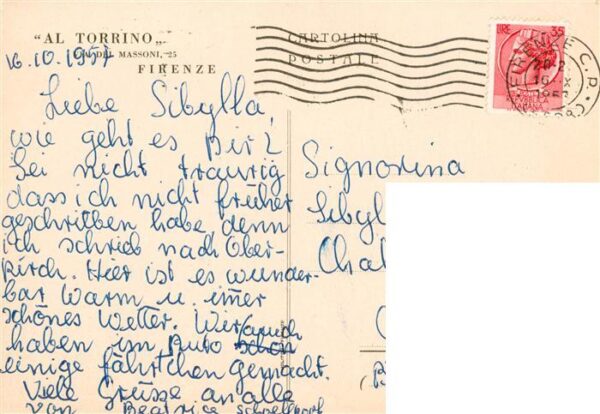 "AL TORRINO"
VIA DEI MASSONI, 25
FIRENZE
CARTOLINA
POSTALE
LIRE 35
FIRENZE C.P.
16.10.1957
Liebe Sibylla,
wie geht es Dir?
Sei nicht traurig
dass ich nicht früher
geschritben habe, denn
ich schrieb nach Ober-
kirch. Hier ist es wunder-
bar warm u. im̄er
schönes Wetter. Wir (auch
haben im Auto schön
einige fährtchen gemacht.
Viele Grüsse an alle
von Beatrice
Signorina
Sibyll